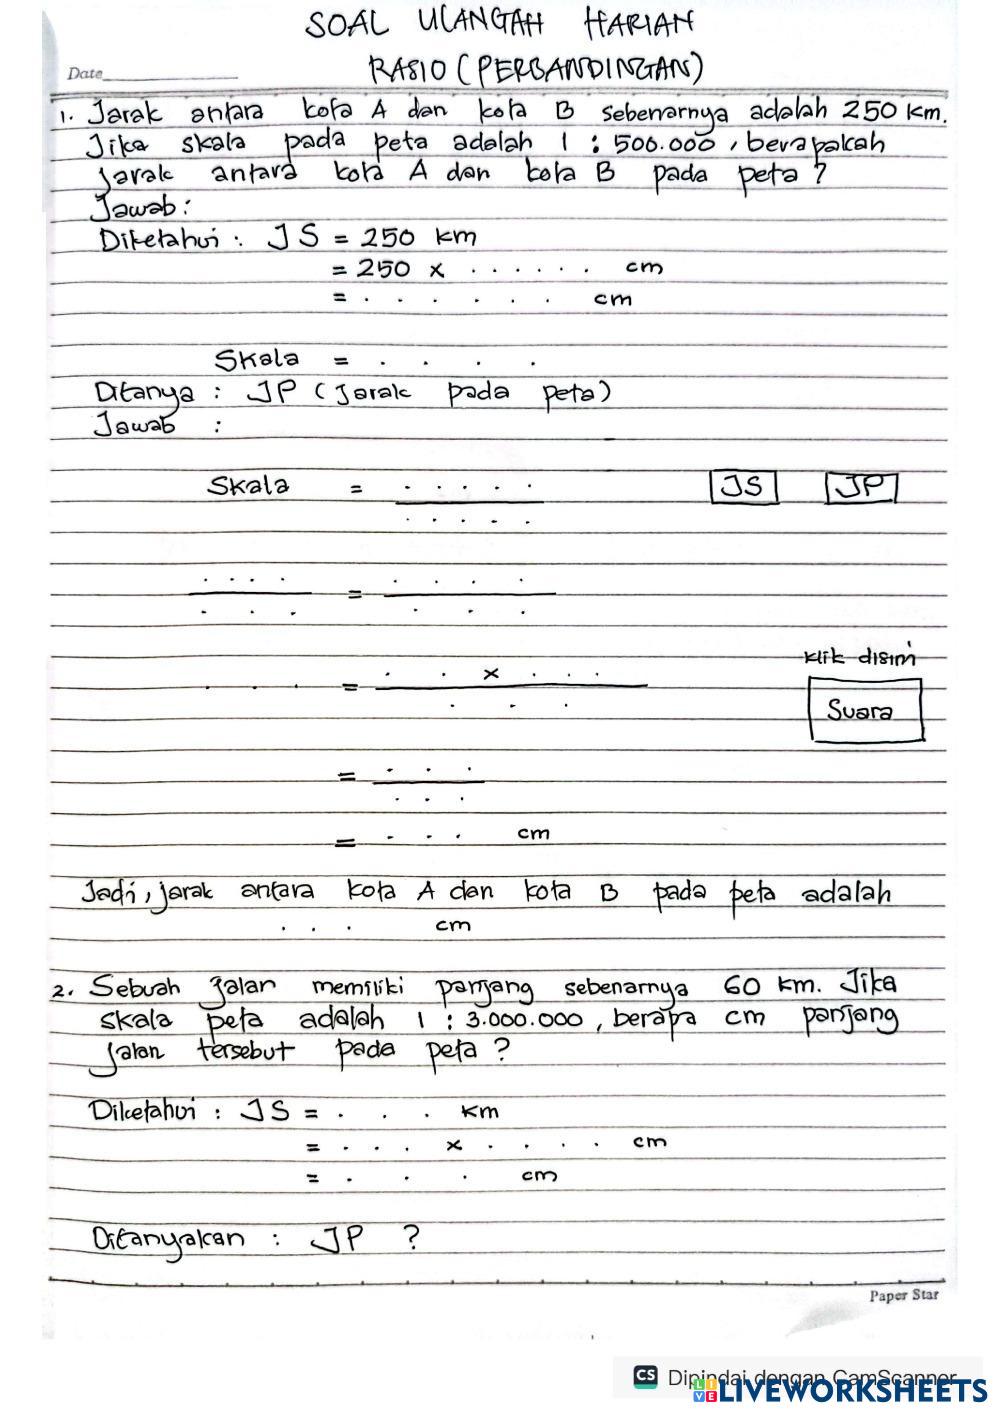 SOAL ULANGAH HARIAN
Date
RASIO (PERBANDINGAN)
1. Jarak antara kota A dan kota B sebenarnya adalah 250 km.
Jika skala pada peta adalah 1 : 500.000, berapakah
jarak antara kota A dan kota B pada peta?
Jawab:
Diketahui : JS = 250 km
= 250 x . . . . . . cm
= . . . . . . cm
Skala = . . . .
Ditanya : JP (Jarak pada peta)
Jawab :
Skala = . . . . . JS JP
. . . . .
. . . . = . . . .
. . . . . .
. . . = . . x . . .
. . .
klik disini
Suara
= . . .
. . .
= . . . cm
Jadi, jarak antara kota A dan kota B pada peta adalah
. . . cm
2. Sebuah jalan memiliki panjang sebenarnya 60 km. Jika
skala peta adalah 1 : 3.000.000, berapa cm panjang
jalan tersebut pada peta?
Diketahui : JS = . . . km
= . . . x . . . . cm
= . . . cm
Ditanyakan : JP ?
Paper Star
CS Dipindai dengan CamScanner
LIVEWORKSHEETS